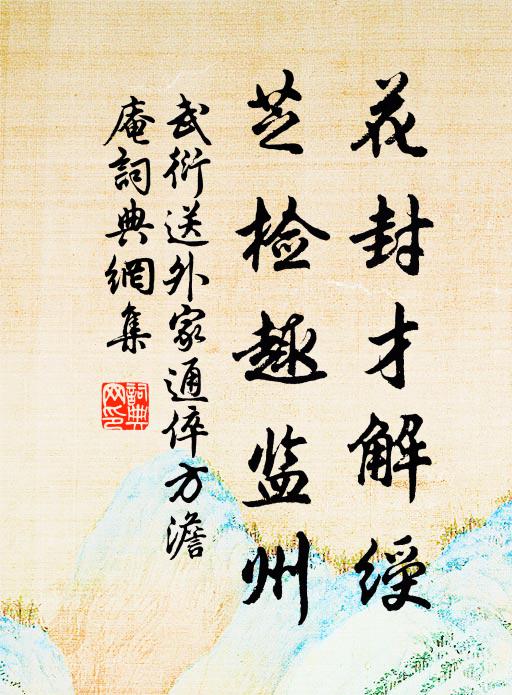 花封才解绶
芝检趣监州
武衍送外家通倅方澹
庵詞典網集
詞典網印